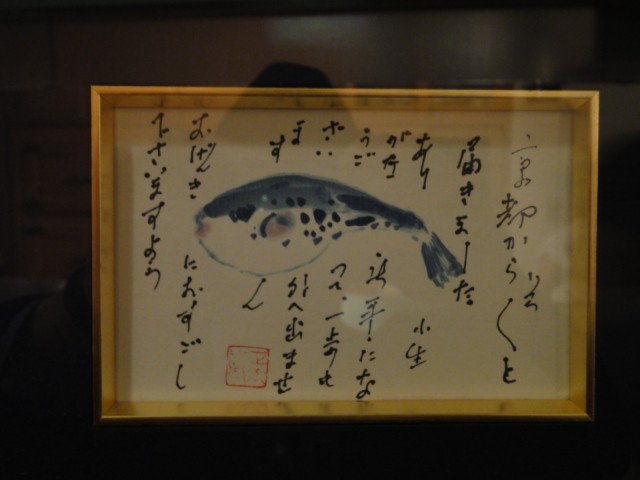 京都から
届きました
あり
がたう
ござい
ます
小生
年にな
つて一歩も
外へ出ませ
ん
おげんき
におすごし
下さいますよう